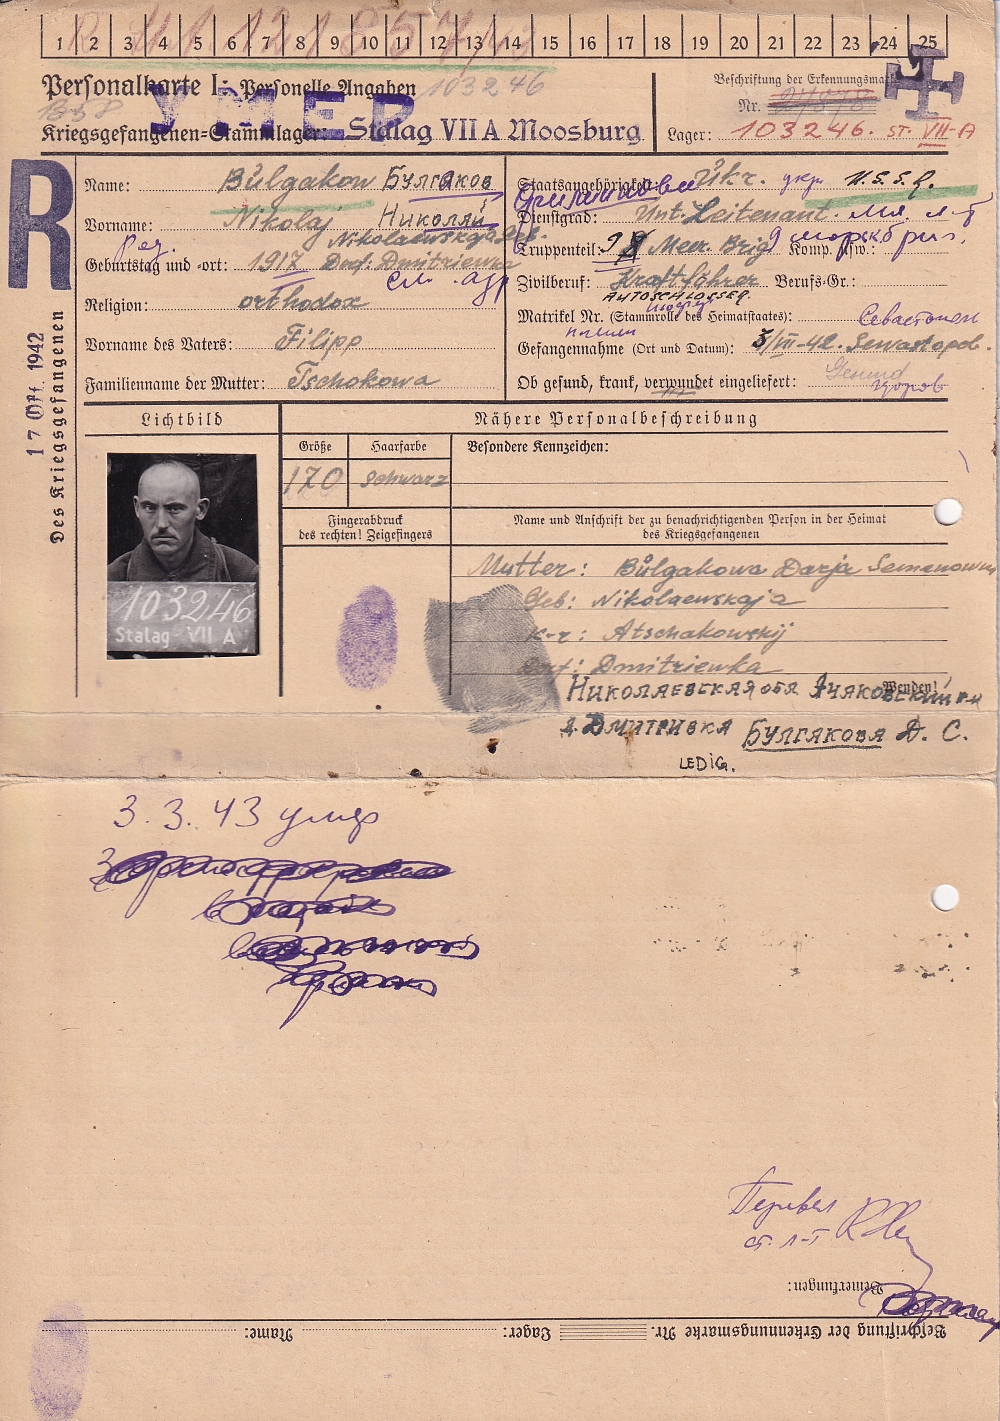 1 2 3 4 5 6 7 8 9 10 11 12 13 14 15 16 17 18 19 20 21 22 23 24 25
Personalkarte I: Personelle Angaben 103246
УМЕР
Kriegsgefangenen-Stammlager: Stalag VII A Moosburg
Beschriftung der Erkennungsmarke
Nr.
Lager: 103246. ST. VII-A
R
17 Okt. 1942
Des Kriegsgefangenen
Name: Bŭlgakow Булгаков
Vorname: Nikolaj Николай
Nikolaewskaja Geb.
Geburtstag und -ort: 1917 Dorf. Dmitriewka
см. адр
Religion: orthodox
Vorname des Vaters: Filipp
Familienname der Mutter: Tschokowa
Филиппович
Staatsangehörigkeit: Ukr. укр U.S.S.R.
Dienstgrad: Unt. Leitenant. мл. л-т
Truppenteil: 9 Meer. Brig Komp. usw.: 9 морск бриг.
Zivilberuf: Kraftföhrer Berufs-Gr.:
AUTOSCHLOSSER.
Matrikel Nr. (Stammrolle des Heimatstaates):
Севастополь
Gefangennahme (Ort und Datum): 3/VII-42. Sewastopol.
Ob gesund, krank, verwundet eingeliefert: Gesund
здоров
Lichtbild
Nähere Personalbeschreibung
Größe Haarfarbe Besondere Kennzeichen:
170 schwarz
Fingerabdruck
des rechten! Zeigefingers
Name und Anschrift der zu benachrichtigenden Person in der Heimat
des Kriegsgefangenen
103246
Stalag VII A
Mutter: Bŭlgakowa Darja Semenowna
Geb: Nikolaewskaja
K-r: Atschakowskij
Dorf: Dmitriewka
Wenden!
Николаевская обл Очаковский р-н
д. Дмитривка Булгакова Д. С.
LEDIG.
3. 3. 43 умер
Перевел
ст. л-т
Bemerkungen:
Name: Lager: Beschriftung der Erkennungsmarke Nr.